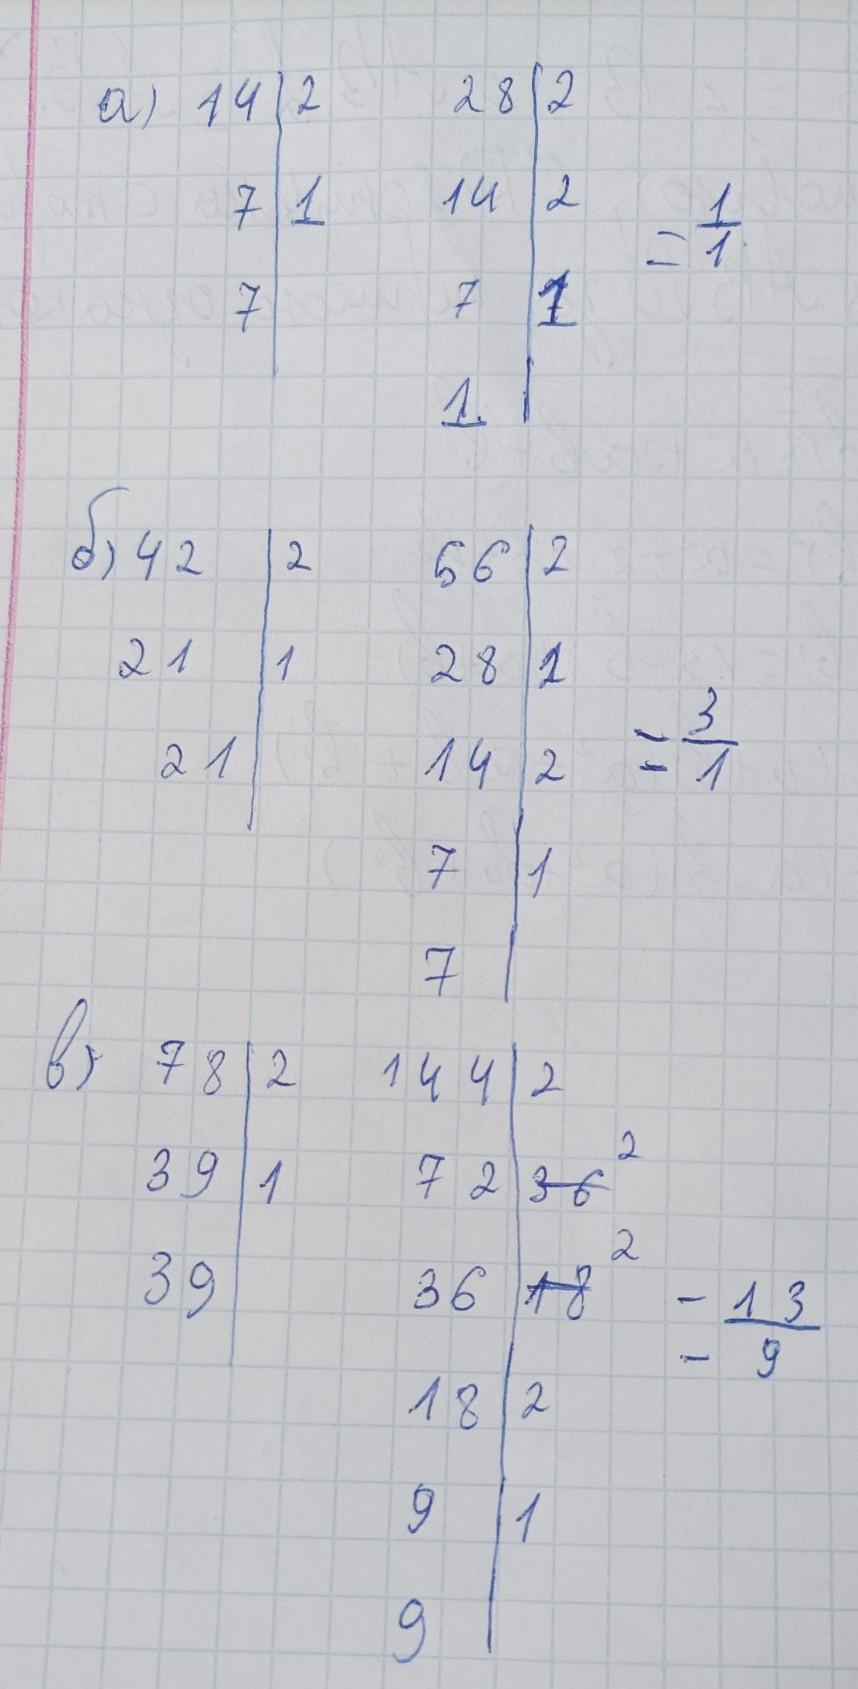 а) 14 | 2 28 | 2
7 | 1 14 | 2
7 | 7 | 1 = 1/1
1 |
б) 42 | 2 56 | 2
21 | 1 28 | 2
21 | 14 | 2 = 3/1
7 | 1
7 |
в) 78 | 2 144 | 2
39 | 1 72 | 36 2
39 | 36 | 18 2 = 13/9
18 | 2
9 | 1
9 |